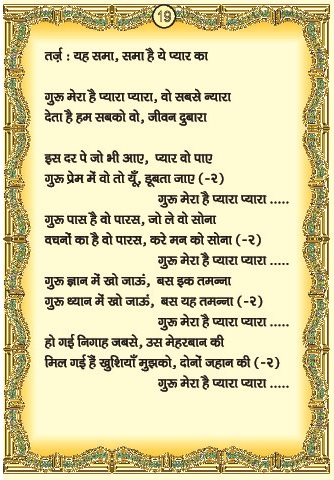 19
तर्ज़ : यह समा, समा है ये प्यार का
गुरू मेरा है प्यारा प्यारा, वो सबसे न्यारा
देता है हम सबको वो, जीवन दुबारा
इस दर पे जो भी आए, प्यार वो पाए
गुरू प्रेम में वो तो यूँ, डूबता जाए (-२)
गुरू मेरा है प्यारा प्यारा .....
गुरू पास है वो पारस, जो ले वो सोना
वचनों का है वो पारस, करे मन को सोना (-२)
गुरू मेरा है प्यारा प्यारा .....
गुरू ज्ञान में खो जाऊं, बस इक तमन्ना
गुरू ध्यान में खो जाऊं, बस यह तमन्ना (-२)
गुरू मेरा है प्यारा प्यारा .....
हो गई निगाह जबसे, उस मेहरबान की
मिल गई हैं खुशियाँ मुझको, दोनों जहान की (-२)
गुरू मेरा है प्यारा प्यारा .....